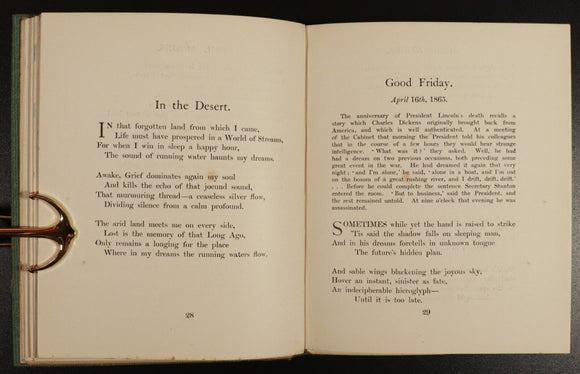 In the Desert.
IN that forgotten land from which I came,
Life must have prospered in a World of Streams,
For when I win in sleep a happy hour,
The sound of running water haunts my dreams.
Awake, Grief dominates again my soul
And kills the echo of that jocund sound,
That murmuring thread—a ceaseless silver flow,
Dividing silence from a calm profound.
The arid land meets me on every side,
Lost is the memory of that Long Ago,
Only remains a longing for the place
Where in my dreams the running waters flow.
28
Good Friday.
April 16th, 1865.
The anniversary of President Lincoln's death recalls a
story which Charles Dickens originally brought back from
America, and which is well authenticated. At a meeting
of the Cabinet that morning the President told his colleagues
that in the course of a few hours they would hear strange
intelligence. 'What was it?' they asked. Well, he had
had a dream on two previous occasions, both preceding some
great event in the war. He had dreamed it again that very
night; 'and I'm alone,' he said, 'alone in a boat, and I'm out
on the bosom of a great rushing river, and I drift, drift, drift.'
. . . Before he could complete the sentence Secretary Stanton
entered the room. 'But to business,' said the President, and
the rest remained untold. At nine o'clock that evening he was
assassinated.
SOMETIMES while yet the hand is raised to strike
'Tis said the shadow falls on sleeping man,
And in his dreams foretells in unknown tongue
The future's hidden plan.
And sable wings blackening the joyous sky,
Hover an instant, sinister as fate,
An indecipherable hieroglyph—
Until it is too late.
29